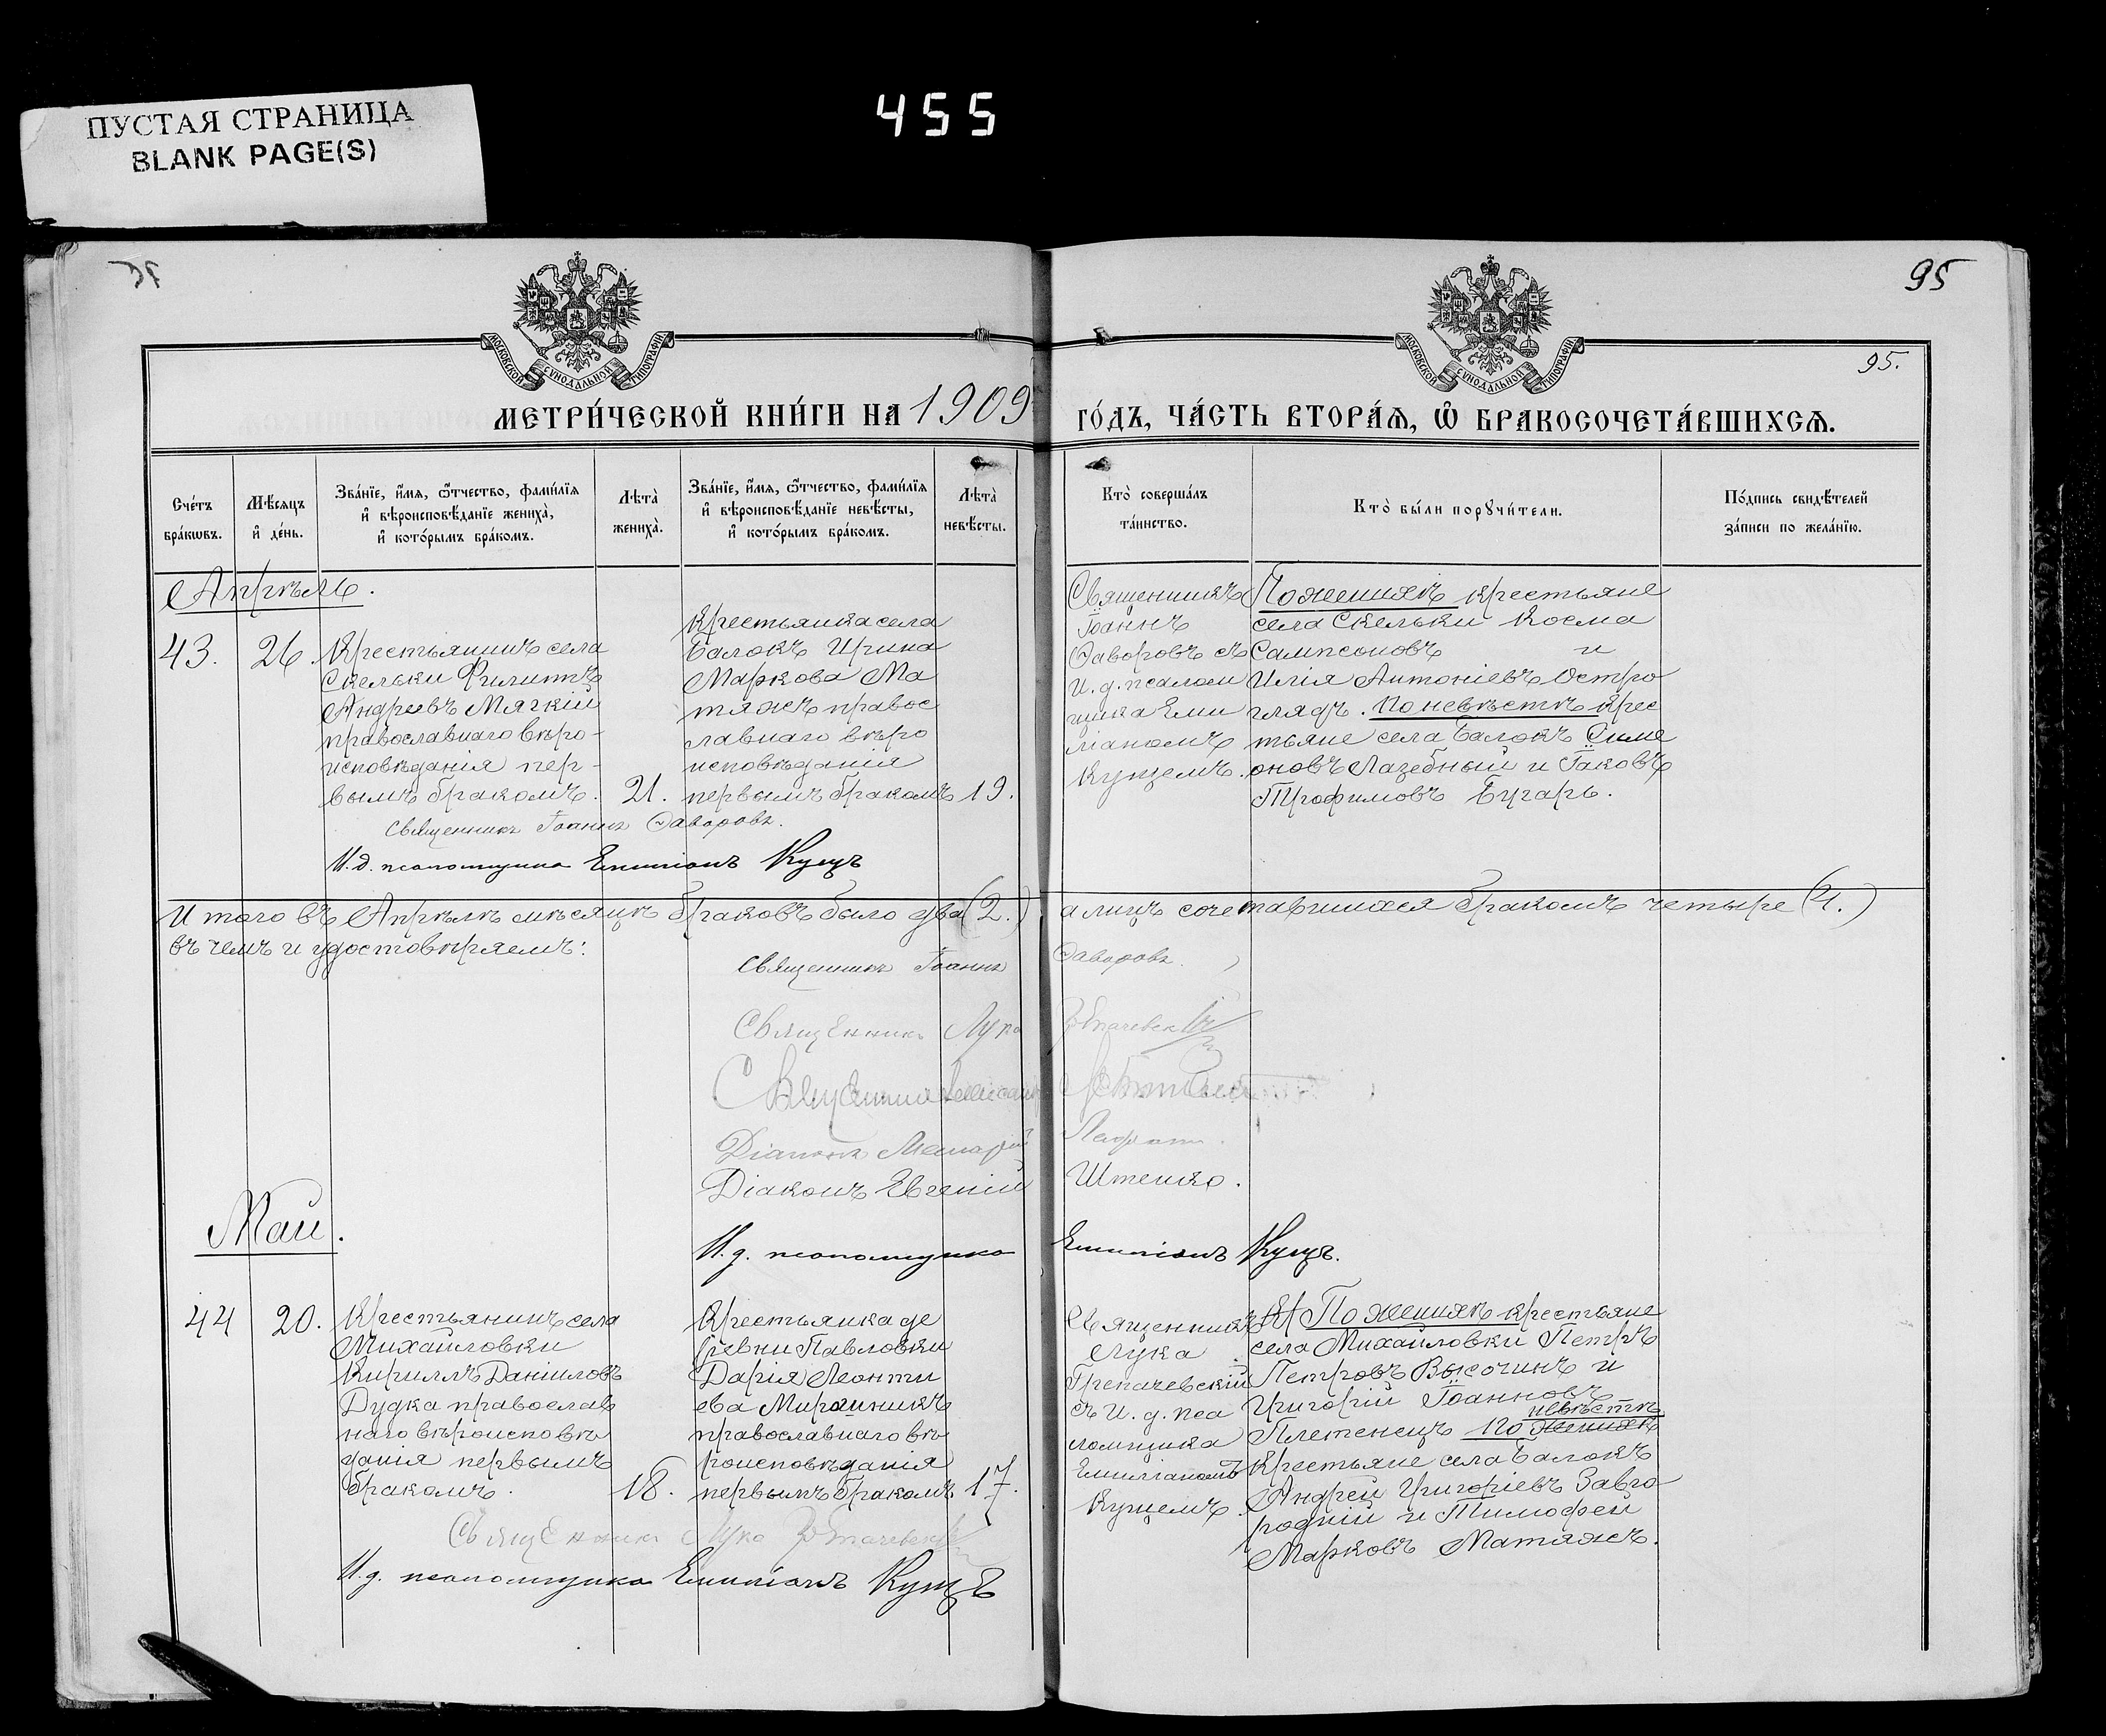 ПУСТАЯ СТРАНИЦА
BLANK PAGE(S)
455
95
95.
МОСКОВСКОЙ СУНОДАЛЬНОЙ ТИПОГРАФІИ
МОСКОВСКОЙ СУНОДАЛЬНОЙ ТИПОГРАФІИ
МЕТРИ́ЧЕСКОЙ КНИ́ГИ НА 1909 ГО́ДЪ, ЧА́СТЬ ВТОРА́Ѧ, Ѡ҆ БРАКОСОЧЕТА́ВШИХСѦ.
Сче́тъ
бра́кѡвъ.
Мѣ́сѧцъ
и҆ де́нь.
Зва́нїе, и҆́мѧ, ѻ҆́тчество, фами́лїѧ
и҆ вѣроисповѣ́данїе жениха̀,
и҆ кото́рымъ бра́комъ.
Лѣта̀
жениха̀.
Зва́нїе, и҆́мѧ, ѻ҆́тчество, фами́лїѧ
и҆ вѣроисповѣ́данїе невѣ́сты,
и҆ кото́рымъ бра́комъ.
Лѣта̀
невѣ́сты.
Кто̀ соверша́лъ
та́инство.
Кто̀ бы́ли порꙋчи́тели.
По́дпись свидѣ́телей
за́писи по жела́нїю.
Апрѣль.
43.
26.
Крестьянинъ села
Скельки Филиппъ
Андреевъ Мягкій
православнаго вѣро-
исповѣданія пер-
вымъ бракомъ.
21.
Крестьянка села
Балокъ Ирина
Маркова Ма
тяжъ правос
лавнаго вѣро
исповѣданія
первымъ бракомъ
19.
Священникъ
Іоаннъ
Ѳаворовъ съ
И. д. псалом
щика Еми
ліаномъ
Кущемъ.
По женихѣ крестьяне
села Скельки Косма
Сампсоновъ и
Илія Антоніевъ Остро
глядъ. По невѣстѣ крес
тьяне села Балокъ Симе
оновъ Лазебный и Іаковъ
Трофимовъ Бугарь.
Священникъ Іоаннъ Ѳаворовъ.
И.д. псаломщика Емиліанъ Кущъ
Итого въ Апрѣлѣ мѣсяцѣ браковъ было два (2.) а лицъ сочетавшихся бракомъ четыре (4.)
въ чемъ и удостовѣряемъ:
Священникъ Іоаннъ Ѳаворовъ.
Священникъ Лука
Діаконъ
Діаконъ Евгеній Штенко.
И.д. псаломщика Емиліанъ Кущъ.
Май.
44
20.
Крестьянинъ села
Михайловки
Кириллъ Даніиловъ
Дудка православ
наго вѣроисповѣ
данія первымъ
бракомъ.
18.
Крестьянка де
ревни Павловки
Дарія Леонти
ева Мирошникъ
православнаго вѣ
роисповѣданія
первымъ бракомъ
17.
Священникъ
Лука
Грепачевскій
съ И. д. пса
ломщика
Емиліаномъ
Кущемъ.
Кр По женихѣ крестьяне
села Михайловки Петръ
Петровъ Высочинъ и
Григорій Іоанновъ
невѣстѣ
Плетенецъ По женихѣ
Крестьяне села Балокъ
Андрей Григоріевъ Завго
родній и Тимофей
Марковъ Матяжъ.
Священникъ Лука
И.д. псаломщика Емиліанъ Кущъ